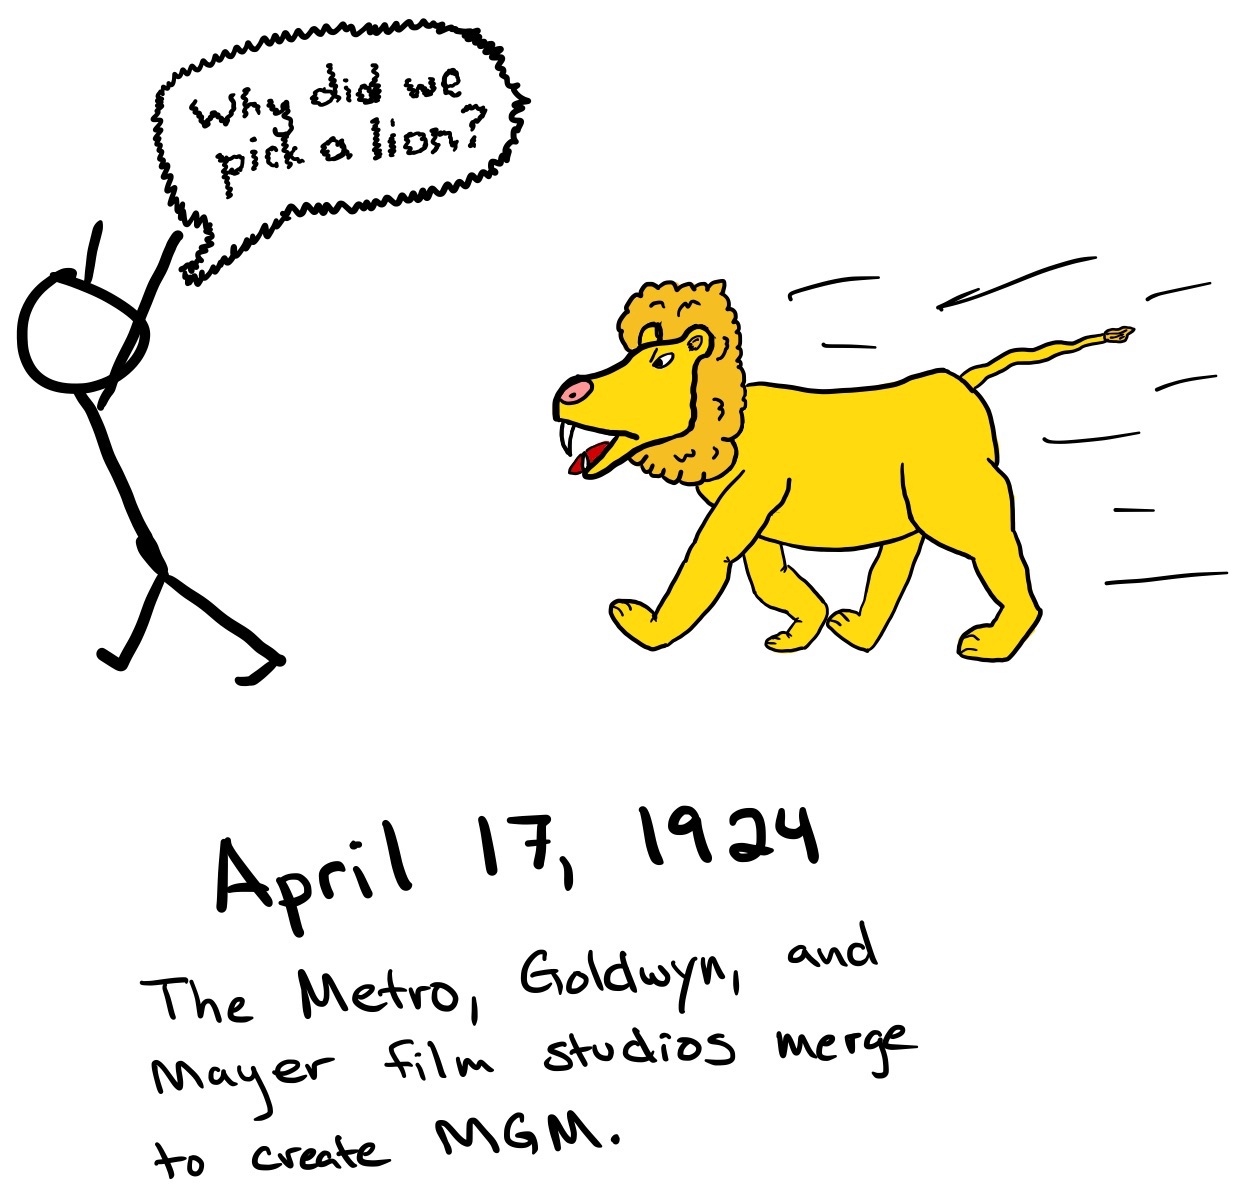 Why did we
pick a lion?
April 17, 1924
The Metro, Goldwyn, and
Mayer film studios merge
to create MGM.